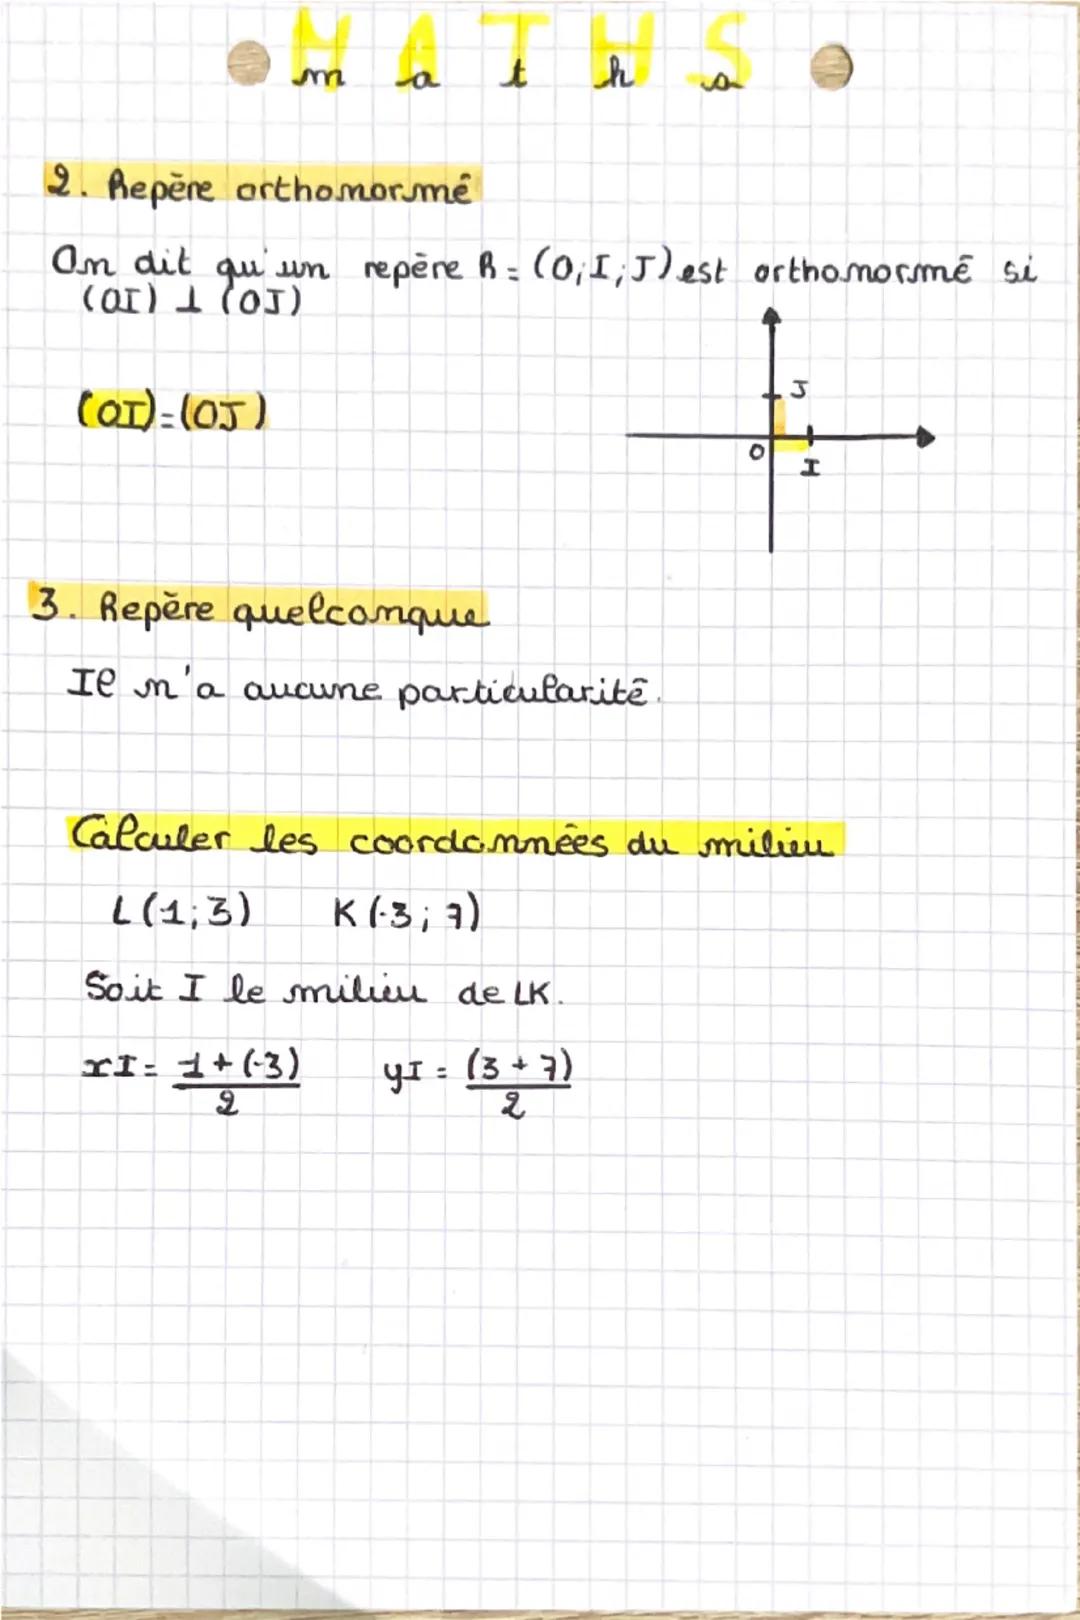 MATHS
maths
2. Repère orthonormé
On dit qu'un repère R = (O; I; J) est orthonormé si
(OI) ⊥ (OJ)
J
(OI) = (OJ)
O
I
3. Repère quelconque
Il n'a aucune particularité.
Calculer les coordonnées du milieu
L (1; 3) K (-3; 7)
Soit I le milieu de LK.
xI = 1 + (-3) / 2 yI = (3 + 7) / 2